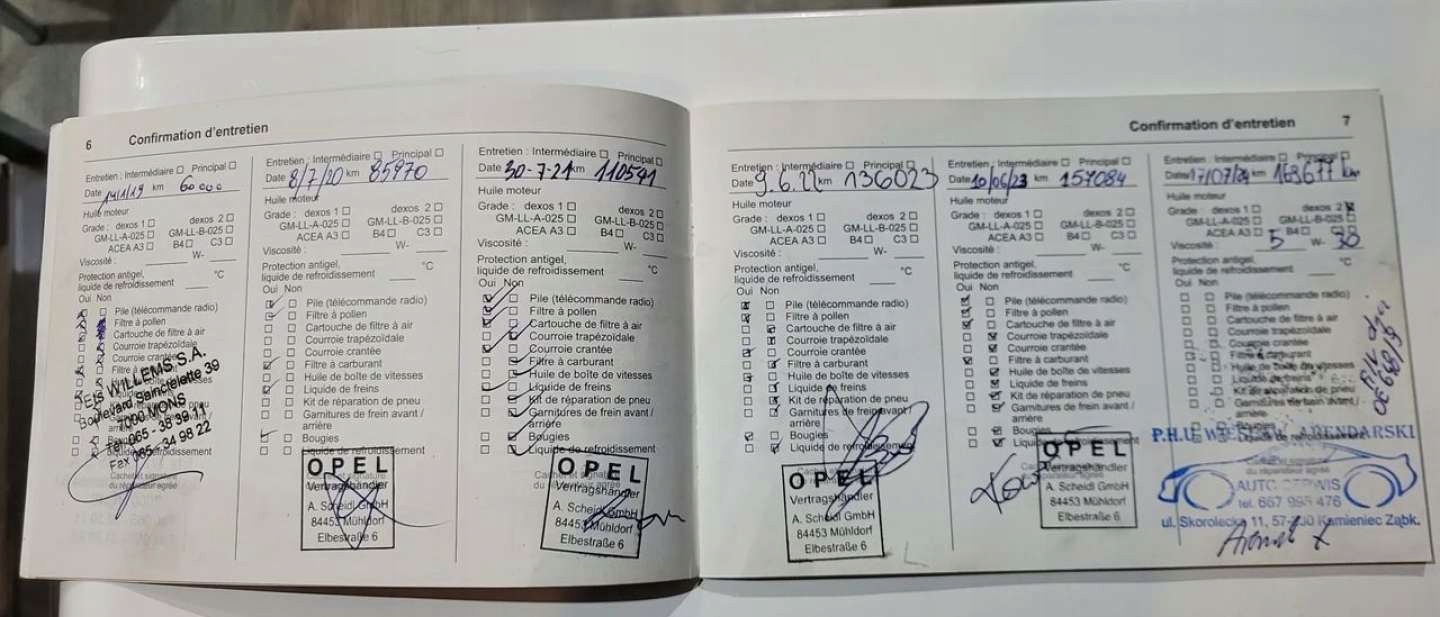 6
Confirmation d'entretien
Entretien : Intermédiaire ☐ Principal ☐
Date 14/1/19 km 60000
Huile moteur
Grade : dexos 1 ☐ dexos 2 ☐
GM-LL-A-025 ☐ GM-LL-B-025 ☐
ACEA A3 ☐ B4 ☐ C3 ☐
Viscosité : W-
Protection antigel, °C
liquide de refroidissement
Oui Non
Pile (télécommande radio)
Filtre à pollen
Cartouche de filtre à air
Courroie trapézoïdale
Courroie crantée
Filtre à
WILLEMS S.A.
Boulevard Sainctelette 39
7000 MONS
065 - 38 39 11
Fax 065 - 34 98 22
Cachet et signature
du réparateur agréé
Entretien : Intermédiaire ☐ Principal ☐
Date 8/7/20 km 85970
Huile moteur
Grade : dexos 1 ☐ dexos 2 ☐
GM-LL-A-025 ☐ GM-LL-B-025 ☐
ACEA A3 ☐ B4 ☐ C3 ☐
Viscosité : W-
Protection antigel, °C
liquide de refroidissement
Oui Non
Pile (télécommande radio)
Filtre à pollen
Cartouche de filtre à air
Courroie trapézoïdale
Courroie crantée
Filtre à carburant
Huile de boîte de vitesses
Liquide de freins
Kit de réparation de pneu
Garnitures de frein avant /
arrière
Bougies
Liquide de refroidissement
OPEL
Vertragshändler
A. Scheidl GmbH
84453 Mühldorf
Elbestraße 6
Entretien : Intermédiaire ☐ Principal ☐
Date 30-7-21 km 110591
Huile moteur
Grade : dexos 1 ☐ dexos 2 ☐
GM-LL-A-025 ☐ GM-LL-B-025 ☐
ACEA A3 ☐ B4 ☐ C3 ☐
Viscosité : W-
Protection antigel, °C
liquide de refroidissement
Oui Non
Pile (télécommande radio)
Filtre à pollen
Cartouche de filtre à air
Courroie trapézoïdale
Courroie crantée
Filtre à carburant
Huile de boîte de vitesses
Liquide de freins
Kit de réparation de pneu
Garnitures de frein avant /
arrière
Bougies
Liquide de refroidissement
OPEL
Vertragshändler
A. Scheidl GmbH
84453 Mühldorf
Elbestraße 6
Confirmation d'entretien
7
Entretien : Intermédiaire ☐ Principal ☐
Date 9.6.22 km 136023
Huile moteur
Grade : dexos 1 ☐ dexos 2 ☐
GM-LL-A-025 ☐ GM-LL-B-025 ☐
ACEA A3 ☐ B4 ☐ C3 ☐
Viscosité : W-
Protection antigel, °C
liquide de refroidissement
Oui Non
Pile (télécommande radio)
Filtre à pollen
Cartouche de filtre à air
Courroie trapézoïdale
Courroie crantée
Filtre à carburant
Huile de boîte de vitesses
Liquide de freins
Kit de réparation de pneu
Garnitures de frein avant /
arrière
Bougies
Liquide de refroidissement
OPEL
Vertragshändler
A. Scheidl GmbH
84453 Mühldorf
Elbestraße 6
Entretien : Intermédiaire ☐ Principal ☐
Date 10/06/23 km 157084
Huile moteur
Grade : dexos 1 ☐ dexos 2 ☐
GM-LL-A-025 ☐ GM-LL-B-025 ☐
ACEA A3 ☐ B4 ☐ C3 ☐
Viscosité : W-
Protection antigel, °C
liquide de refroidissement
Oui Non
Pile (télécommande radio)
Filtre à pollen
Cartouche de filtre à air
Courroie trapézoïdale
Courroie crantée
Filtre à carburant
Huile de boîte de vitesses
Liquide de freins
Kit de réparation de pneu
Garnitures de frein avant /
arrière
Bougies
Liquide de refroidissement
OPEL
Vertragshändler
A. Scheidl GmbH
84453 Mühldorf
Elbestraße 6
Entretien : Intermédiaire ☐ Principal ☐
Date 17/07/24 169677 km
Huile moteur
Grade : dexos 1 ☐ dexos 2 ☒
GM-LL-A-025 ☐ GM-LL-B-025 ☐
ACEA A3 ☐ B4 ☐ C3 ☐
Viscosité : 5 W- 30
Protection antigel, °C
liquide de refroidissement
Oui Non
Pile (télécommande radio)
Filtre à pollen
Cartouche de filtre à air
Courroie trapézoïdale
Courroie crantée
Filtre à carburant
Huile de boîte de vitesses
Liquide de freins
Kit de réparation de pneu
Garnitures de frein avant /
arrière
P.H.U ARENDARSKI
AUTO SERWIS
tel. 667 985 476
ul. Skorolecka 11, 57-230 Kamieniec Ząbk.